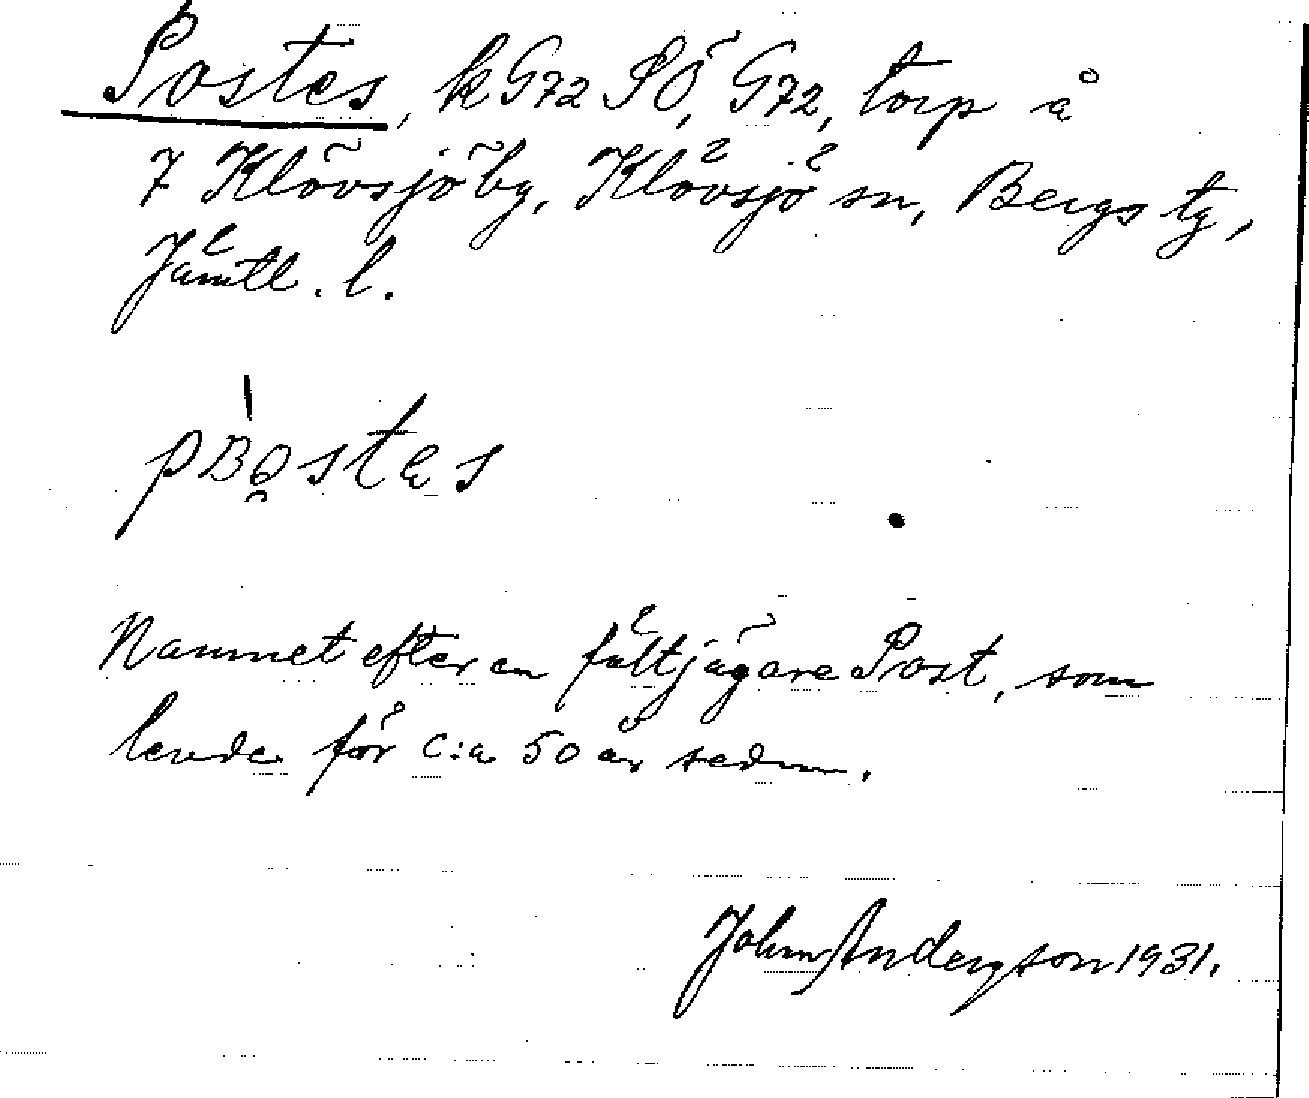 Postes, k G72 SÖ, G72, torp å
7 Klövsjöby, Klövsjö sn, Bergs tg,
Jämtl. l.
Namnet efter en fältjägare Post, som
levde för c:a 50 år sedan.
John Andersson 1931.